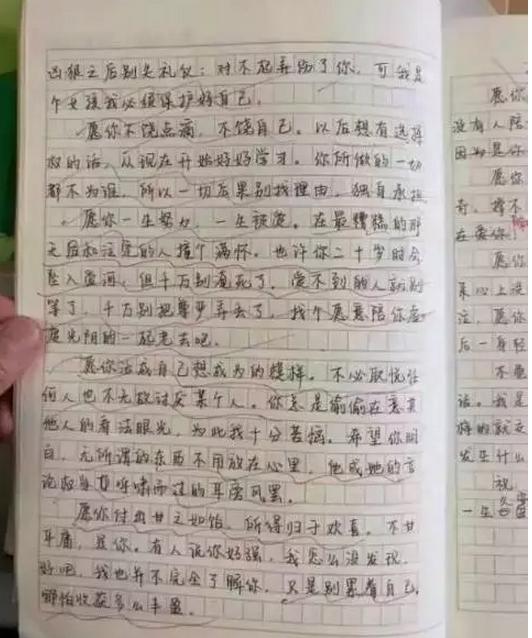 凶狠之后别失礼仪：对不起弄伤了你，可我是
个女孩我必须保护好自己。
愿你不饶点滴，不饶自己。以后想有选择
权的话，从现在开始好好学习。你所做的一切
都不为谁，所以一切后果别找理由，独自承担
愿你一生努力，一生被爱。在最糟糕的那
天后和注定的人撞个满怀。也许你二十岁时会
坠入爱河，但千万别爱死了。爱不到的人就别
等了，千万别把尊严弄丢了，找个愿意陪你虚
度光阴的一起老去吧。
愿你活成自己想成为的模样。不必取悦任
何人也不无故讨厌某个人。你总是偷偷在意其
他人的看法眼光，为此找十分苦恼。希望你明
白，无所谓的东西不用放在心里，他或她的言
论权当其呼啸而过的耳旁风罢。
愿你付出甘之如饴，所得归于欢喜。不甘
平庸，是你。有人说你好强，我怎么没发现。
好吧，我也并不完全了解你，只是别累着自己，
哪怕收获多么丰盈。
愿你
没有人陪
因为是你
愿你
奇，撑不
在爱你
愿你
后一身轻
不要
话。我是
发生什么
祝